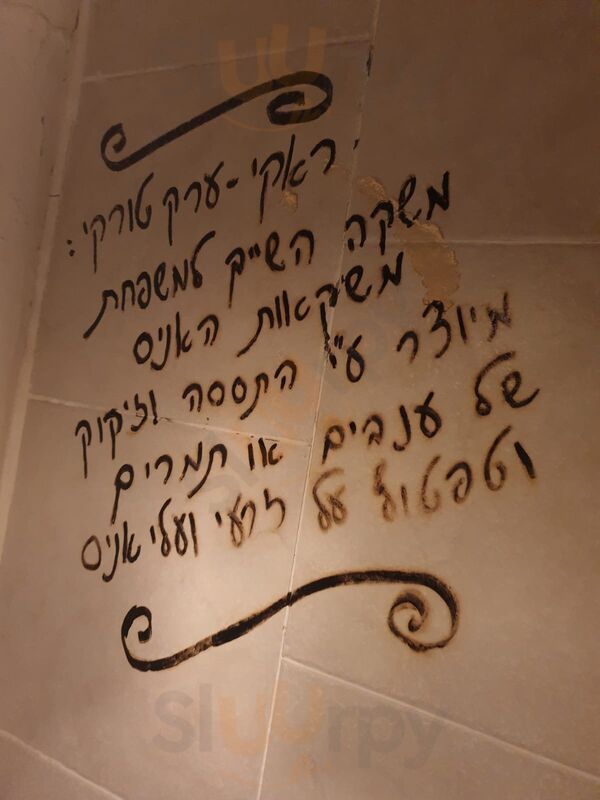 ראקי - ערק טורקי:
משקה השייך למשפחת
משקאות האניס
מיוצר ע"י התססה וזיקוק
של ענבים או תמרים
וטפטוף על זרעי ועלי אניס
Sluurpy
Sluurpy